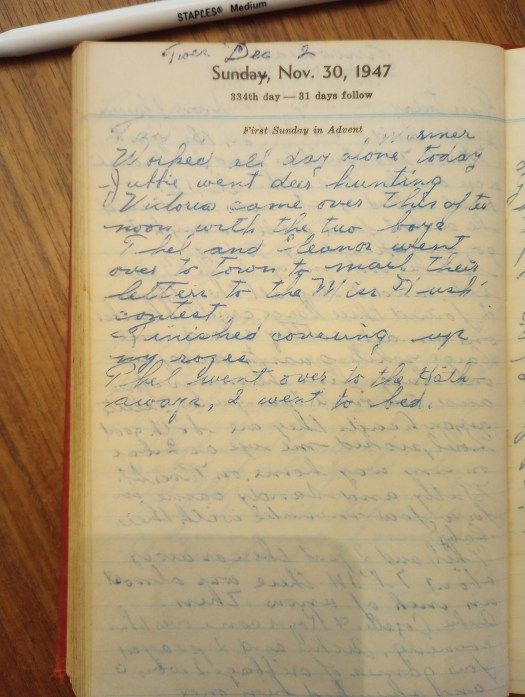 STAPLES® Medium
Tues Dec 2
Sunday, Nov. 30, 1947
334th day — 31 days follow
First Sunday in Advent
Warmer
Worked all day alone today
Juttie went deer hunting
Victoria came over this after
noon with the two boys
Phel and Eleanor went
over to town to mail their
letters to the Miss Hush
contest
Finished covering up
my roses
Phel went over to the Hath
aways, I went to bed.